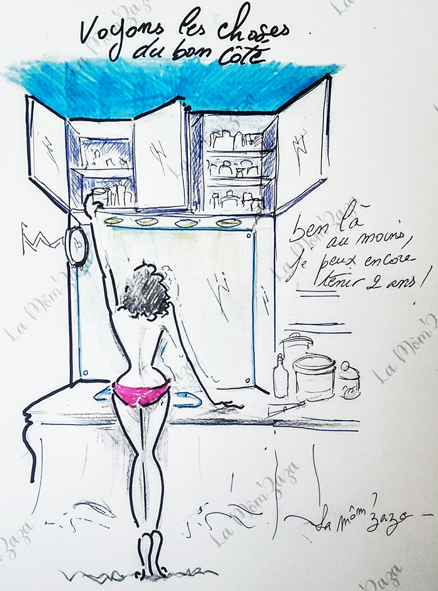 Voyons les choses
du bon côté
ben là
au moins,
je peux encore
tenir 2 ans !
La môm'zaza
La Môm'Zaza
La Môm'Zaza
La Môm'Zaza
La Môm'Zaza
La Môm'Zaza